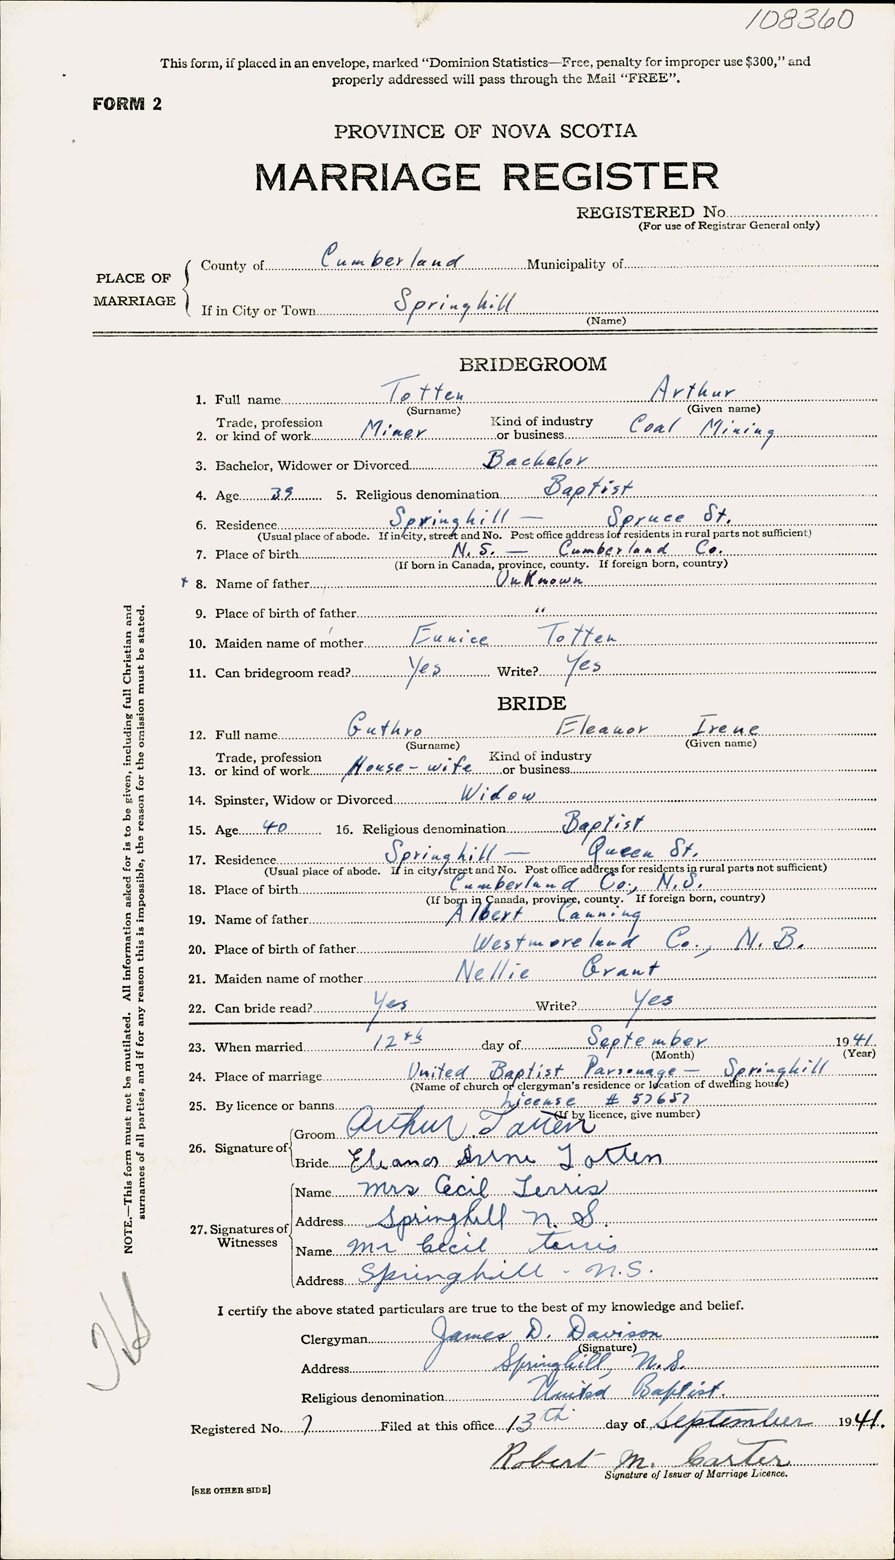 108360
This form, if placed in an envelope, marked “Dominion Statistics—Free, penalty for improper use $300,” and
properly addressed will pass through the Mail “FREE”.
FORM 2
PROVINCE OF NOVA SCOTIA
MARRIAGE REGISTER
REGISTERED No.
(For use of Registrar General only)
PLACE OF MARRIAGE
County of Cumberland Municipality of
If in City or Town Springhill
(Name)
BRIDEGROOM
1. Full name Totten Arthur
(Surname) (Given name)
2. Trade, profession or kind of work Miner Kind of industry or business Coal Mining
3. Bachelor, Widower or Divorced Bachelor
4. Age 39 5. Religious denomination Baptist
6. Residence Springhill — Spruce St.
(Usual place of abode. If in city, street and No. Post office address for residents in rural parts not sufficient)
7. Place of birth N.S. — Cumberland Co.
(If born in Canada, province, county. If foreign born, country)
+ 8. Name of father Unknown
9. Place of birth of father "
10. Maiden name of mother Eunice Totten
11. Can bridegroom read? Yes Write? Yes
BRIDE
12. Full name Guthro Eleanor Irene
(Surname) (Given name)
13. Trade, profession or kind of work House-wife Kind of industry or business
14. Spinster, Widow or Divorced Widow
15. Age 40 16. Religious denomination Baptist
17. Residence Springhill — Queen St.
(Usual place of abode. If in city street and No. Post office address for residents in rural parts not sufficient)
18. Place of birth Cumberland Co., N.S.
(If born in Canada, province, county. If foreign born, country)
19. Name of father Albert Canning
20. Place of birth of father Westmoreland Co., N.B.
21. Maiden name of mother Nellie Grant
22. Can bride read? Yes Write? Yes
23. When married 12th day of September 1941
(Month) (Year)
24. Place of marriage United Baptist Parsonage — Springhill
(Name of church or clergyman's residence or location of dwelling house)
25. By licence or banns License # 57657
(If by licence, give number)
26. Signature of
Groom Arthur Totten
Bride Eleanor Irene Totten
27. Signatures of Witnesses
Name Mrs Cecil Terris
Address Springhill N. S.
Name Mr Cecil Terris
Address Springhill - N.S.
I certify the above stated particulars are true to the best of my knowledge and belief.
Clergyman James D. Davison
(Signature)
Address Springhill, N.S.
Religious denomination United Baptist.
Registered No. 7 Filed at this office 13th day of September 1941.
Robert M. Carter
Signature of Issuer of Marriage Licence.
[SEE OTHER SIDE]
NOTE.—This form must not be mutilated. All information asked for is to be given, including full Christian and
surnames of all parties, and if for any reason this is impossible, the reason for the omission must be stated.